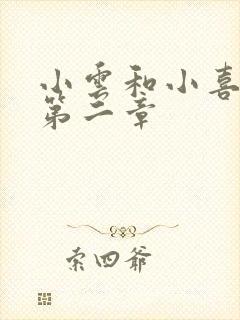 小雲和小喜
第二章
索四爺